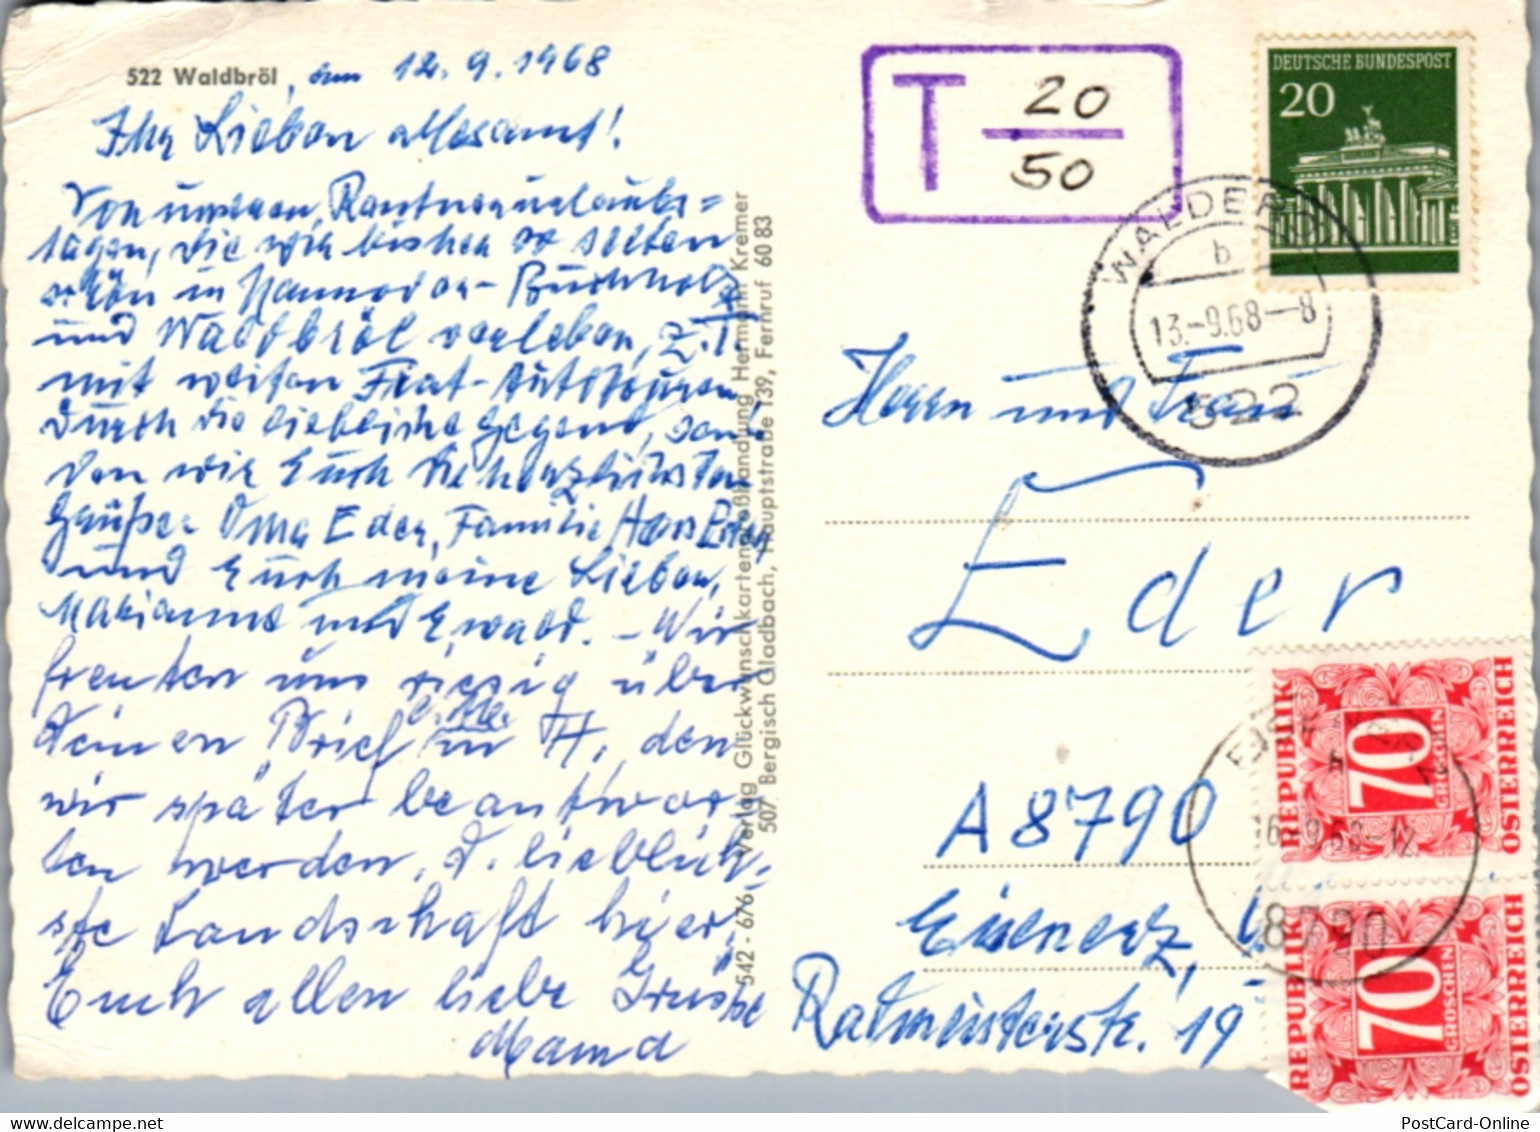 522 Waldbröl, am 12.9.1968
Ihr Lieben allesamt!
Von unseren Rentnerurlaubs=
tagen, die wir bisher so selten
schön in Hannover-Buchholz
und Waldbröl verleben, z.T.
mit weiten Fiat-Autotouren
durch die liebliche Gegend, sen-
den wir Euch die herzlichsten
Grüße. Oma Eder, Familie Hans Eder
und Euch meine Lieben,
Marianne und Ewald. - Wir
freuten uns riesig über
Deinen Brief in H, den
wir später beantwor-
ten werden. D. lieblich-
ste Landschaft hier.
Euch allen liebe Grüße
Mama
542 - 676 Verlag Glückwunschkartengroßhandlung Hermann Kremer
507 Bergisch Gladbach, Hauptstraße 139, Fernruf 60 83
T 20
50
DEUTSCHE BUNDESPOST
20
WALDBRÖL
b
13.-9.68-8
522
Herrn und Frau
Eder
A 8790
Eisenerz,
Ratmeisterstr. 19
REPUBLIK
70
GROSCHEN
ÖSTERREICH
REPUBLIK
70
GROSCHEN
ÖSTERREICH
8790
PostCard-Online
www.delcampe.net